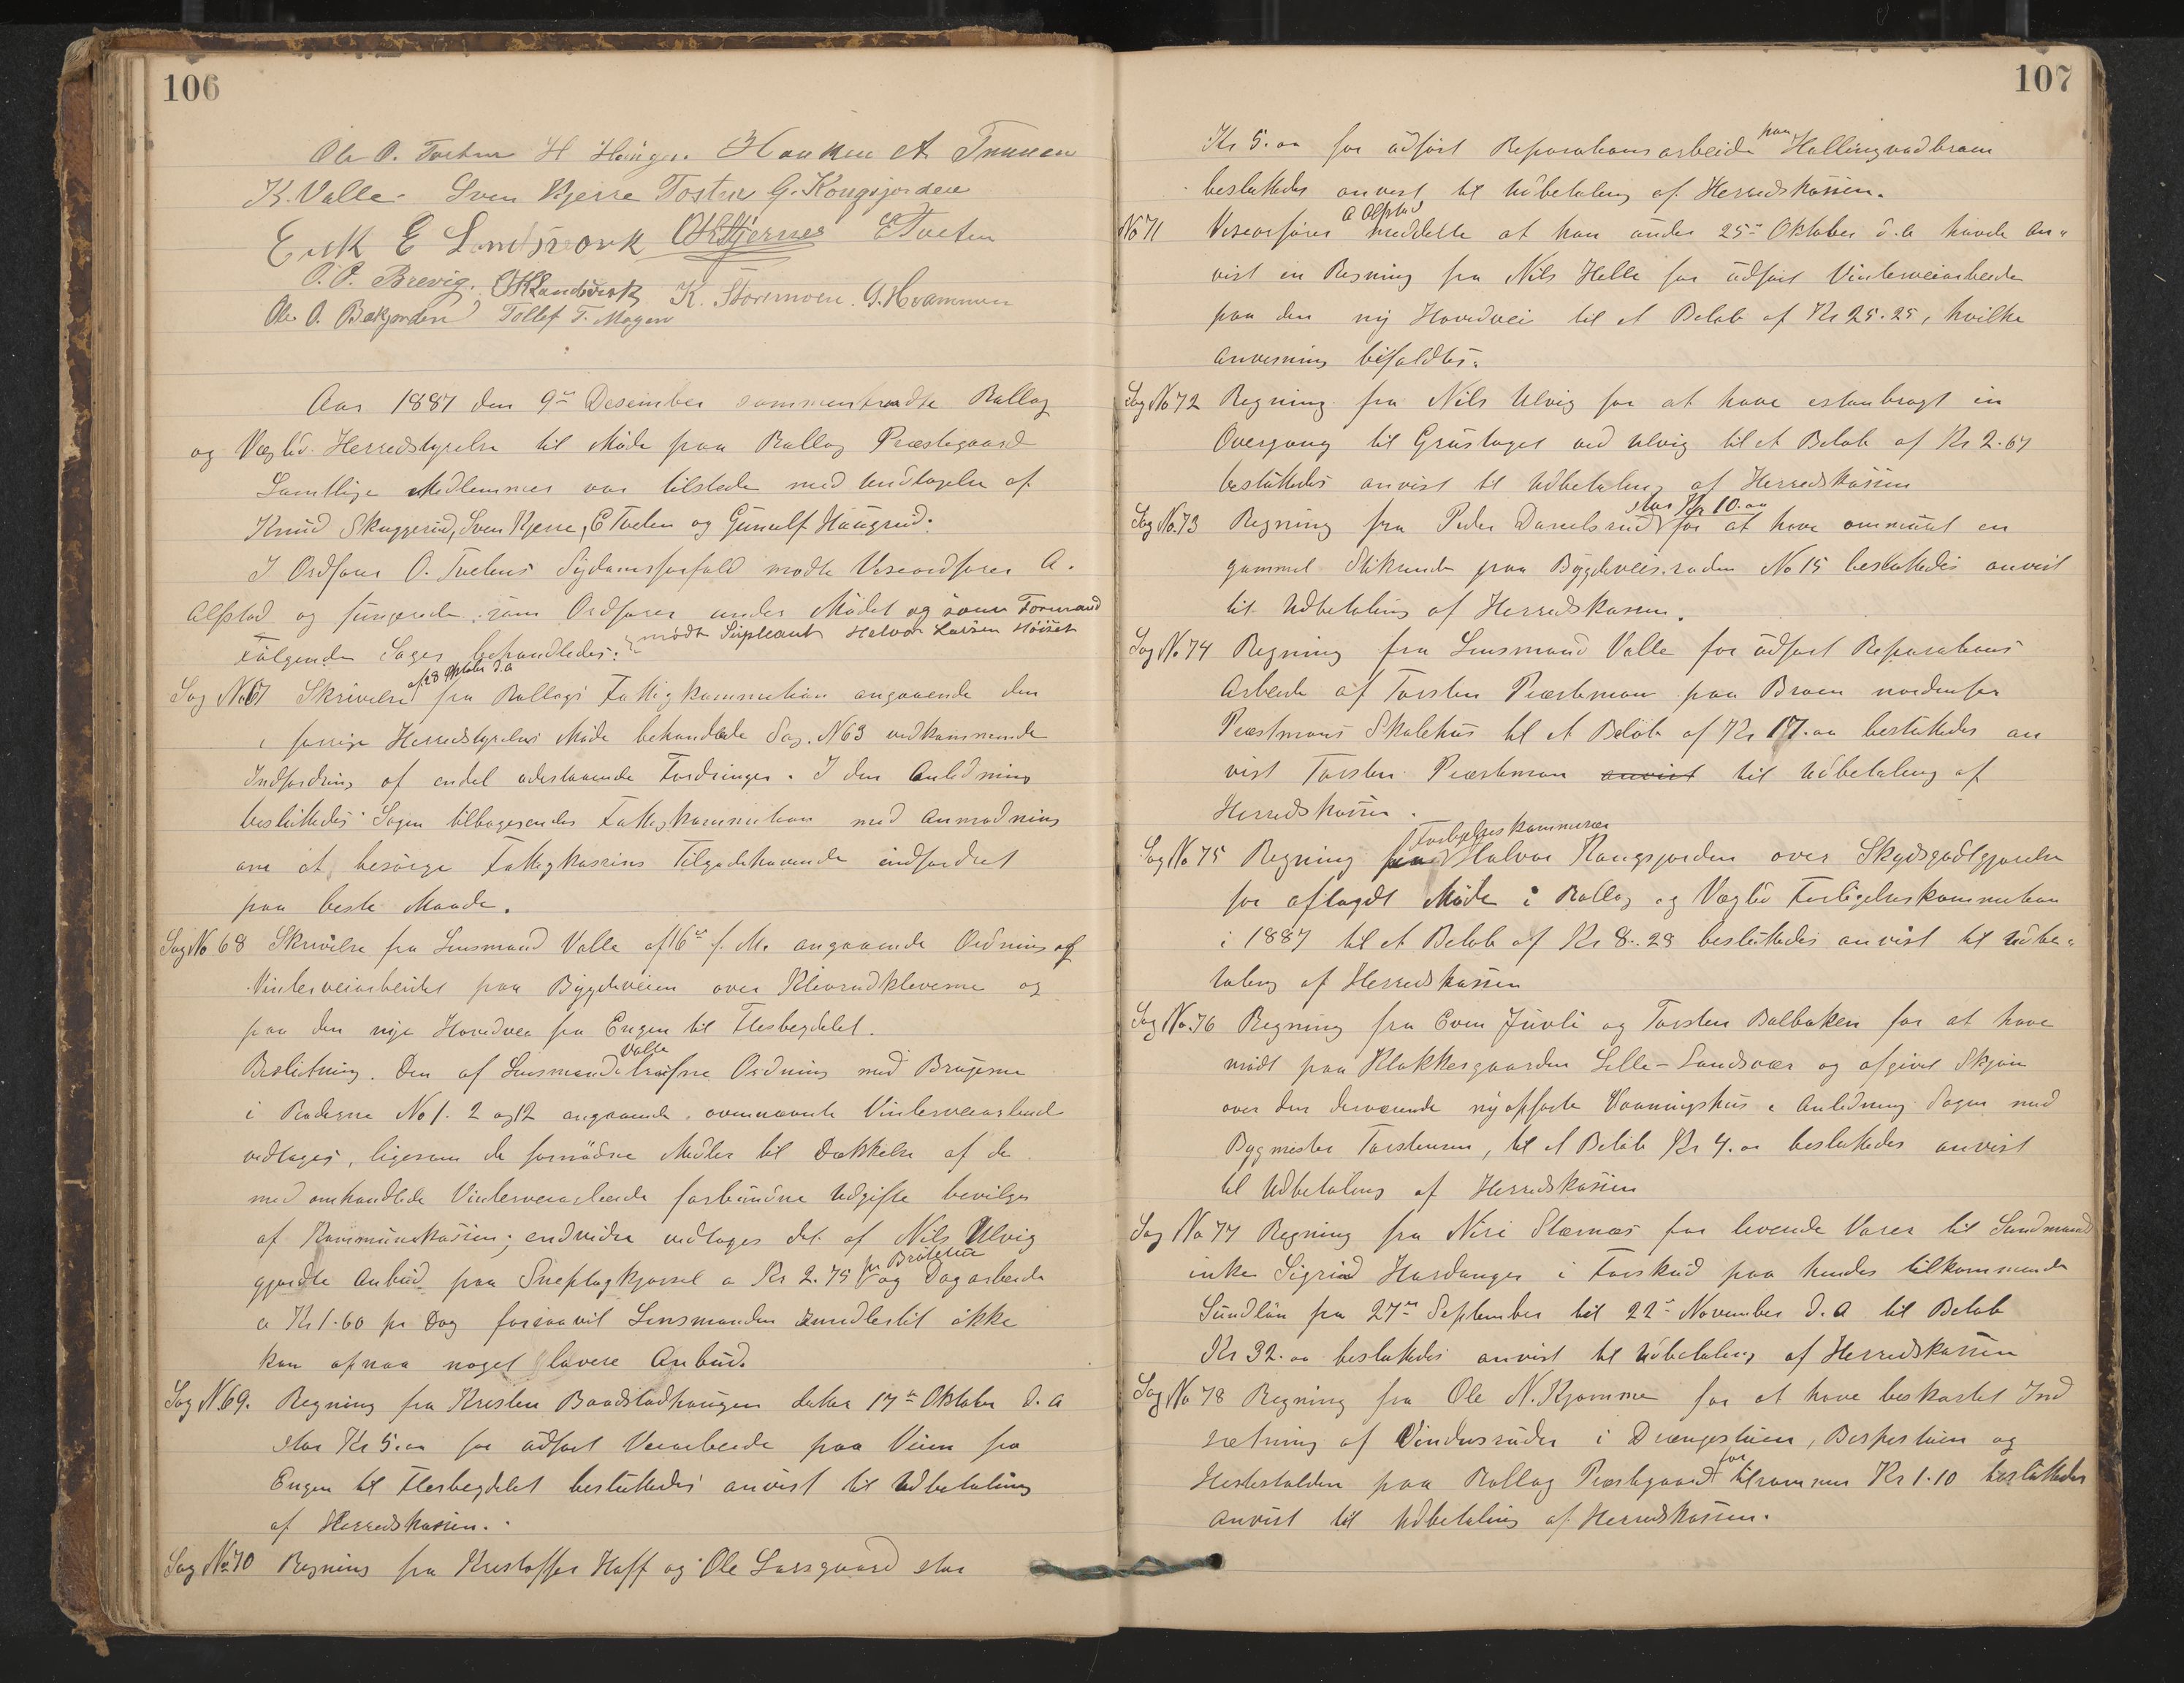 106
Ole O. Tveten H Haugen. Haaken A Traaen
K. Valle. Sven Bjerre Tosten G. Kongsjorden
Erik E Landsverk Tveten
O. P. Brevig. Landsverk K. Stormoen. G. Hvammen
Ole O. Bakjorden Tollef T. Mogen
Aar 1887 den 9de Desember sammentraadte Rollag
og Vægli Herredstyrelse til Møde paa Rollag Præstegaard
Samtlige Medlemmer var tilstede med Undtagelse af
Knud Skuggerud, Sven Bjerre, E Tveten og Gunulf Haugrud.
I Ordfører O. Tvetens Sygdomsforfald mødte Viseordfører A.
Alfstad og fungerede som Ordfører under Mødet og som Formand
mødte Supleant Halvor Larsen
Følgende Sager behandledes:
af 28 Oktober d.a
Sag No 67 Skrivelse fra Rollags Fattigkommission angaaende den
i forrige Herredstyrelses Møde behandlede Sag. N 63 vedkommende
Indfordring af endel udestaaende Fordringer. I den Anledning
besluttedes Sagen tilbagesendes Fattigkommission med Anmodning
om at besørge Fattigkassens Tilgodehavende indfordret
paa beste Maade.
Sag No 68 Skrivelse fra Lensmand Valle af 16de f. M. angaaende Ordning af
Vinterveiarbeidet paa Bygdeveien over Klevrudkleverne og
paa den nye Hovedvei fra Engen til Flesbergdelet.
Valle
Beslutning. Den af Lensmand trufne Ordning med Brugerne
i Roderne No 1. 2 og 12 angaaende ovennævnte Vinterveiarbeide
vedtages, ligesom de fornødne Midler til Dækkelse af de
med omhandlede Vinterveiarbeide forbundne Udgifter bevilges
af Kommunekassen; endvidre vedtages det af Nils Ulvig
pr Brøiten
gjordte Anbud paa Sneplogkjørsel a Kr 2.75 og Dagarbeide
a Kr 1.60 pr Dag forsaavit Lensmanden imidlertid ikke
kan opnaa noget lavere Anbud.
Sag N. 69. Regning fra Kristen Baadstadhaugen datter 17de Oktober d.a
stor Kr 5.00 for udført Veiarbeide paa Veien fra
Engen til Flesbergdelet besluttedes anvist til Udbetaling
af Herredskassen.
Sag No 70 Regning fra Kristoffer Hoff og Ole Larsgaard stor
107
paa
Kr 5.00 for udført Reparationsarbeide Hallingvadbroen
besluttedes anvist til Udbetaling af Herredskassen.
A Alfstad
No 71 Viseordfører meddelte at han under 25de Oktober d.a havde an-
vist en Regning fra Nils Helle for udført Vinterveiarbeide
paa den ny Hovedvei til et Beløb af Kr 25.25, hvilke
Anvisning bifaldtes.
Sag No 72 Regning fra Nils Ulvig for at have istandbragt en
Overgang til Grustaget ved Ulvig til et Beløb af Kr 2.67
besluttedes anvist til Udbetaling af Herredskassen
stor Kr 10.00
Sag No. 73 Regning fra Peder Danielsrud for at have ommuret en
gammel Stikrende paa Bygdeveisroden No 15 besluttedes anvist
til Udbetaling af Herredskassen.
Sag No 74 Regning fra Lensmand Valle for udført Reparations
Arbeide af Torsten Præstmoen paa Broen nordenfor
Præstmoens Skolehus til et Beløb af Kr 17.00 besluttedes an
vist Torsten Præstmoen anvist til Udbetaling af
Herredskassen.
Forligelseskommissær
Sag No 75 Regning fra Halvor Kongsjorden over Skydsgodtgjørelse
for aflagdt Møde i Rollag og Vægli Forligelseskommission
i 1887 til et Beløb af Kr 8.28 besluttedes anvist til Udbe-
taling af Herredskassen
Sag No. 76 Regning fra Even Juvli og Torsten Balbaken for at have
mødt paa Klokkergaarden Lille-Landsvær og afgivet Skjøn
over den derværende nyopførte Vaaningshus i Anledning Sagen med
Bygmester Torstensen, til et Beløb Kr 4.00 besluttedes anvist
til Udbetaling af Herredskassen
Sag No 77 Regning fra Niri Stærnæs for leverede Varer til Sundmand
enke Sigrid Hardanger i Forskud paa hendes tilkommende
Sundløn fra 27de September til 22de November d.a til Beløb
Kr 32.00 besluttedes anvist til Udbetaling af Herredskassen
Sag No 78 Regning fra Ole N. Kjomme for at have beskostet Ind
sætning af Vindusruder i Drengestuen, Borgerstuen og
for
Hestestalden paa Rollag Præstegaard tilsammen Kr 1.10 besluttedes
anvist til Udbetaling af Herredskassen.